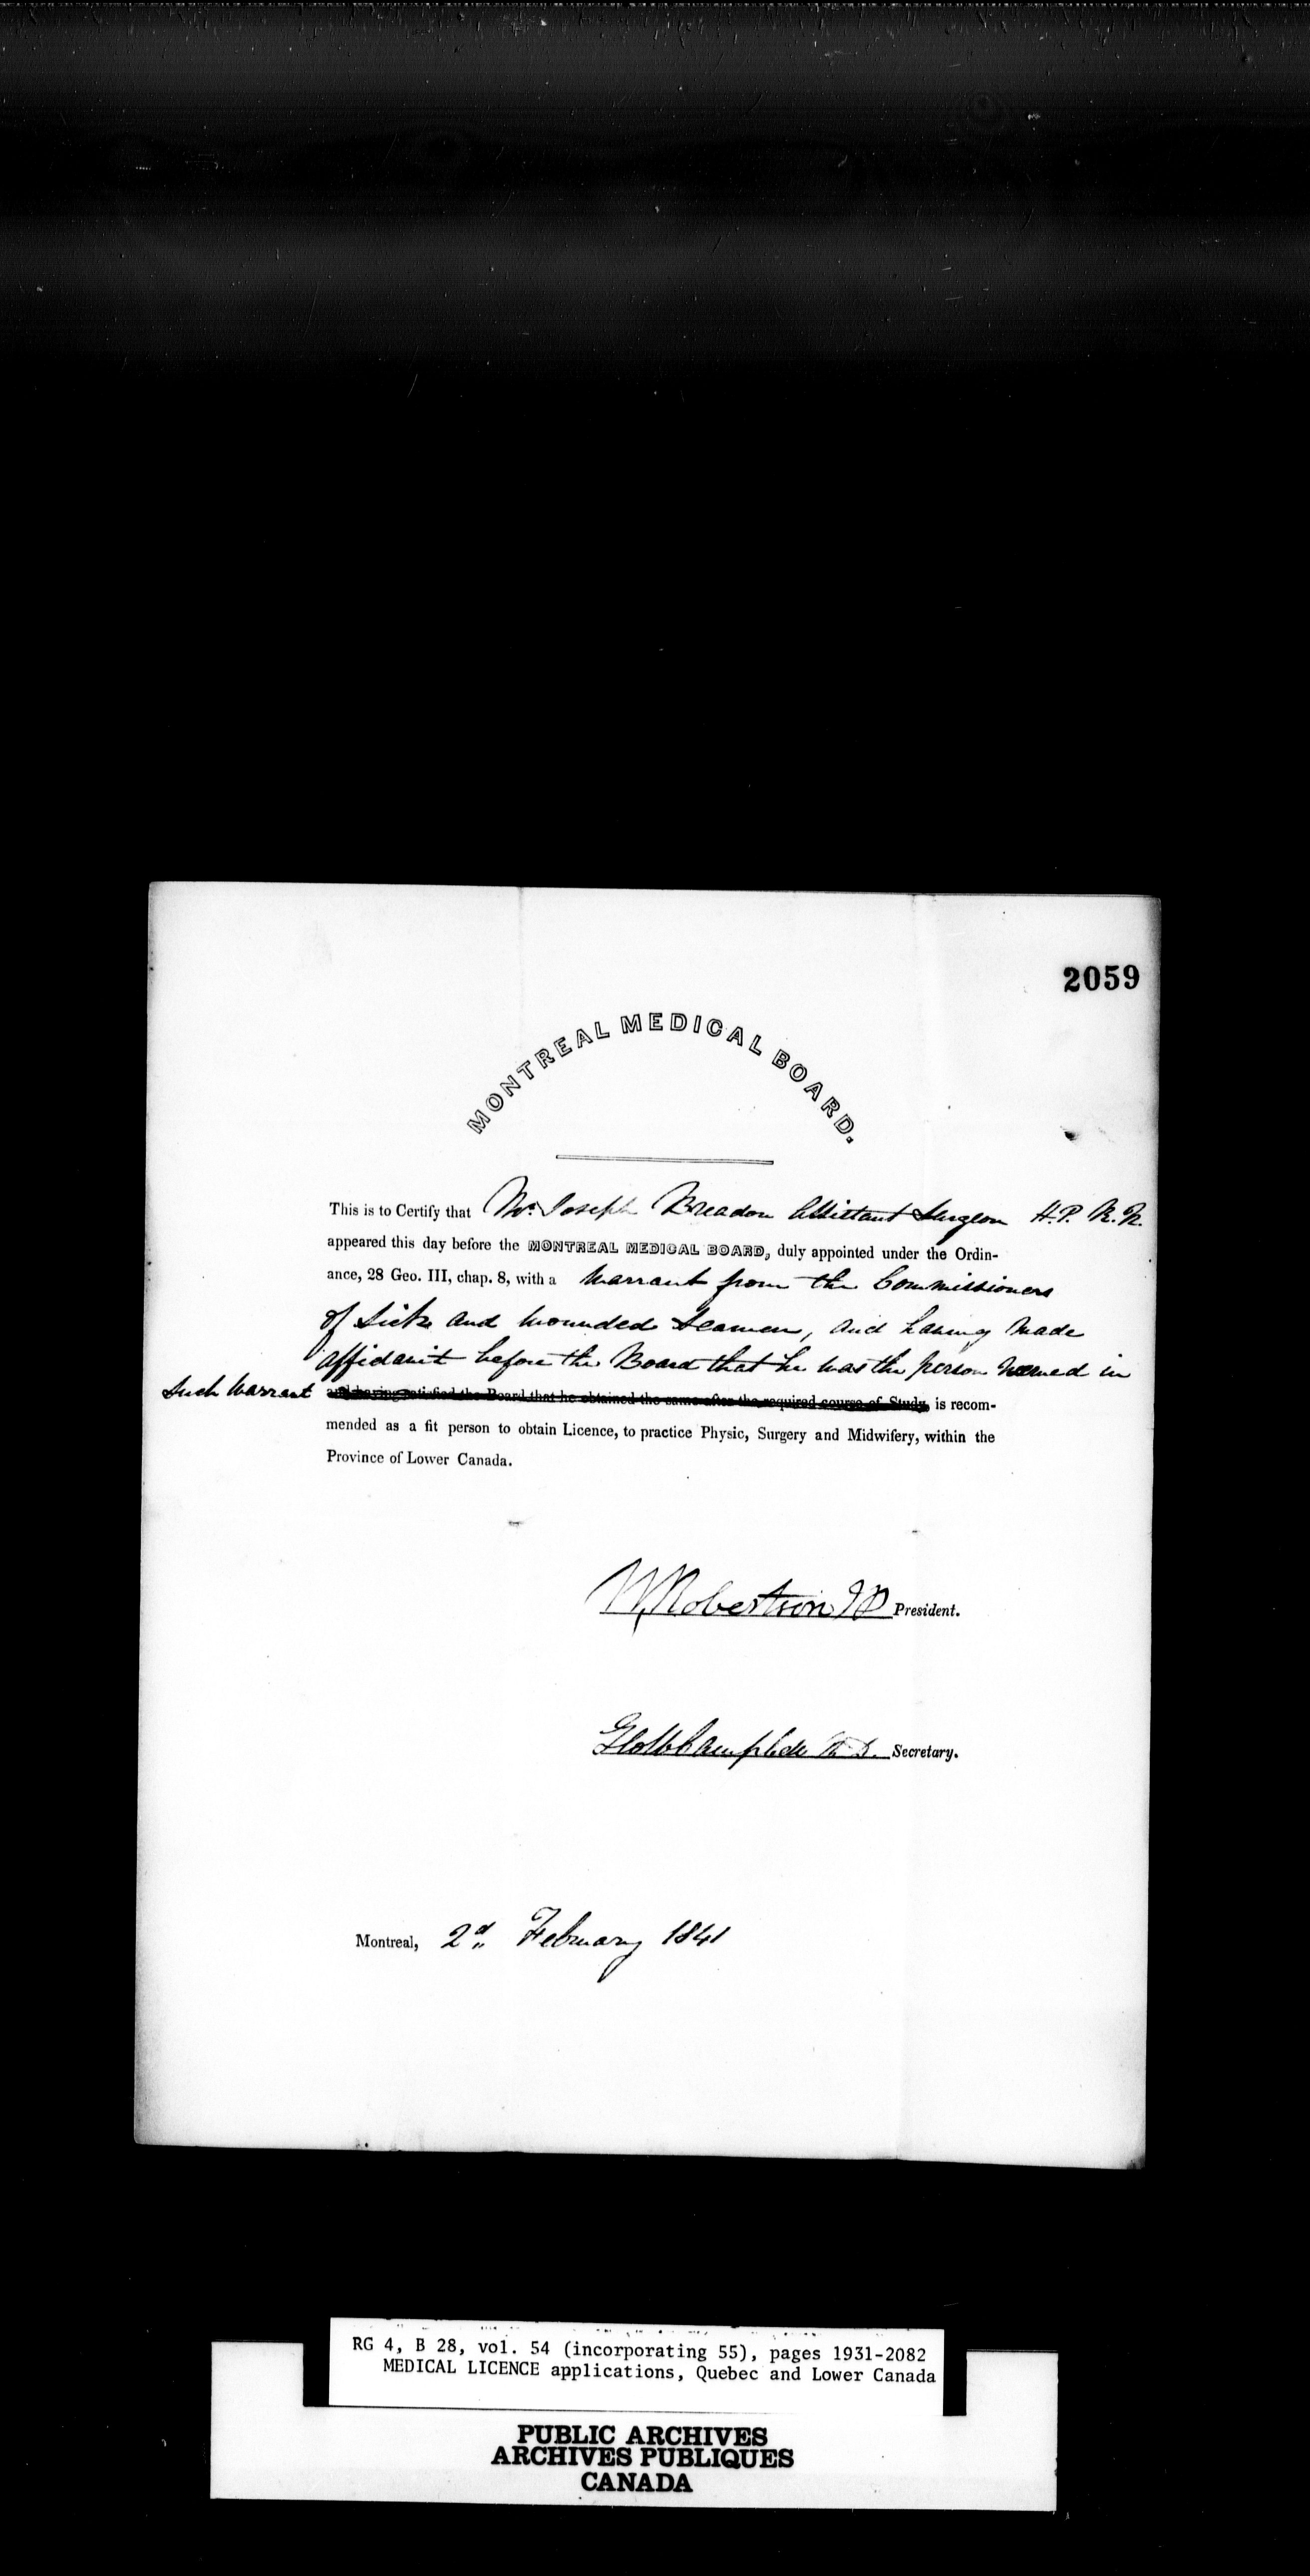 2059
MONTREAL MEDICAL BOARD.
This is to Certify that Mr. Joseph Breadon Assistant Surgeon H.P. R.N.
appeared this day before the MONTREAL MEDICAL BOARD, duly appointed under the Ordin-
ance, 28 Geo. III, chap. 8, with a Warrant from the Commissioners
of Sick and Wounded Seamen, and having made
affidavit before the Board that he was the person named in
such Warrant and having satisfied the Board that he obtained the same after the required course of Study, is recom-
mended as a fit person to obtain Licence, to practice Physic, Surgery and Midwifery, within the
Province of Lower Canada.
W Robertson President.
Campbell M.D. Secretary.
Montreal, 2d. February 1841
RG 4, B 28, vol. 54 (incorporating 55), pages 1931-2082
MEDICAL LICENCE applications, Quebec and Lower Canada
PUBLIC ARCHIVES
ARCHIVES PUBLIQUES
CANADA